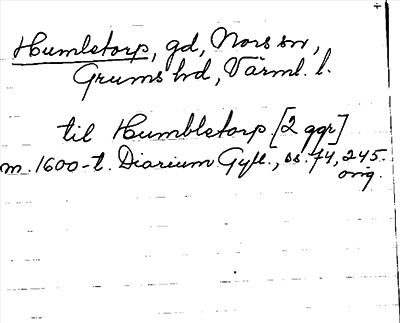 Humletorp, gd, Nors sn,
Grums hd, Värml. l.
til Humbletorp [2 ggr]
m. 1600-t. Diarium Gyll., ss. 74, 245.
orig.